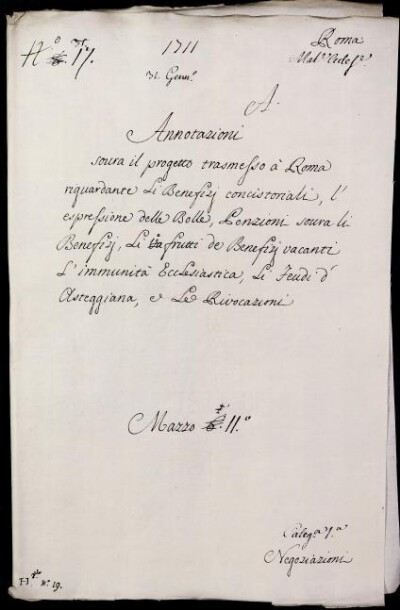 N.° 17.
1711
31. Genn.°
Roma
Mat.e Eccles.e
A.
Annotazioni
sovra il progetto trasmesso à Roma
riguardante Li Benefizj concistoriali, l'
espressione delle Bolle, Penzioni sovra li
Benefizj, Li frutti de Benefizj vacanti
L'immunità Ecclesiastica, Li Feudi d'
Asteggiana, e Le Rivocazioni
Mazzo 11.°
Categ.a 7.a
Negoziazioni
n.° 19.